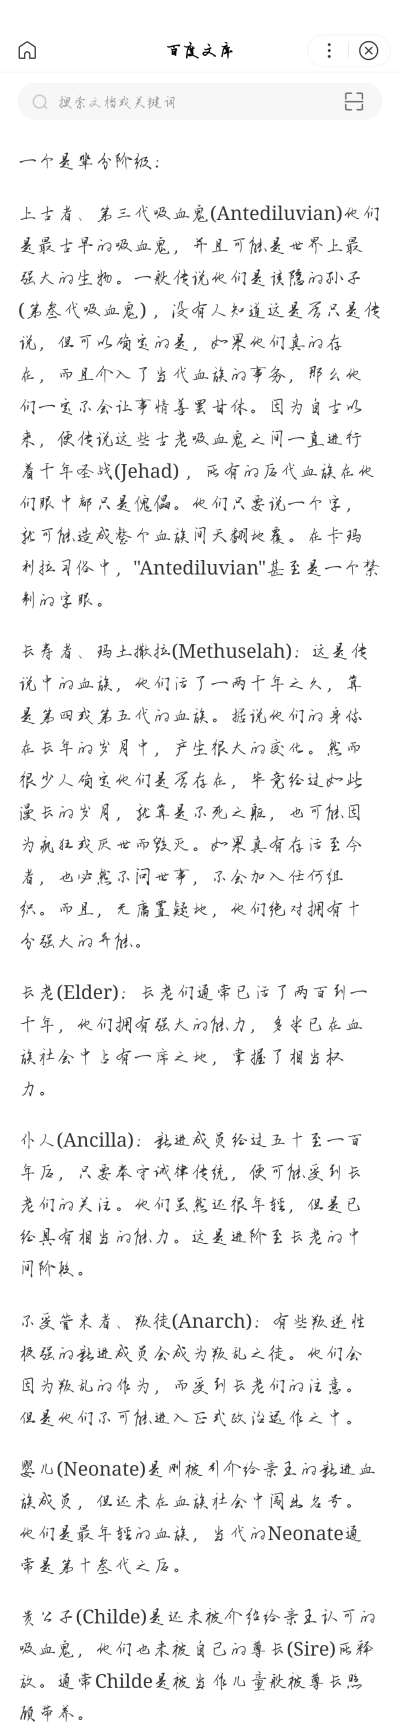 百度文库
搜索文档或关键词
一个是辈分阶级：
上古者、第三代吸血鬼(Antediluvian)他们
是最古早的吸血鬼，并且可能是世界上最
强大的生物。一般传说他们是该隐的孙子
(第叁代吸血鬼)，没有人知道这是否只是传
说，但可以确定的是，如果他们真的存
在，而且介入了当代血族的事务，那么他
们一定不会让事情善罢甘休。因为自古以
来，便传说这些古老吸血鬼之间一直进行
着千年圣战(Jehad)，所有的后代血族在他
们眼中都只是傀儡。他们只要说一个字，
就可能造成整个血族间天翻地覆。在卡玛
利拉习俗中，"Antediluvian"甚至是一个禁
制的字眼。
长寿者、玛土撒拉(Methuselah)：这是传
说中的血族，他们活了一两千年之久，算
是第四或第五代的血族。据说他们的身体
在长年的岁月中，产生很大的变化。然而
很少人确定他们是否存在，毕竟经过如此
漫长的岁月，就算是不死之躯，也可能因
为疯狂或厌世而毁灭。如果真有存活至今
者，也必然不问世事，不会加入任何组
织。而且，无庸置疑地，他们绝对拥有十
分强大的异能。
长老(Elder)：长老们通常已活了两百到一
千年，他们拥有强大的能力，多半已在血
族社会中占有一席之地，掌握了相当权
力。
仆人(Ancilla)：新进成员经过五十至一百
年后，只要奉守诫律传统，便可能受到长
老们的关注。他们虽然还很年轻，但是已
经具有相当的能力。这是进阶至长老的中
间阶段。
不受管束者、叛徒(Anarch)：有些叛逆性
极强的新进成员会成为叛乱之徒。他们会
因为叛乱的作为，而受到长老们的注意。
但是他们不可能进入正式政治运作之中。
婴儿(Neonate)是刚被引介给亲王的新进血
族成员，但还未在血族社会中闯出名号。
他们是最年轻的血族，当代的Neonate通
常是第十叁代之后。
贵公子(Childe)是还未被介绍给亲王认可的
吸血鬼，他们也未被自己的尊长(Sire)所释
放。通常Childe是被当作儿童般被尊长照
顾带养。